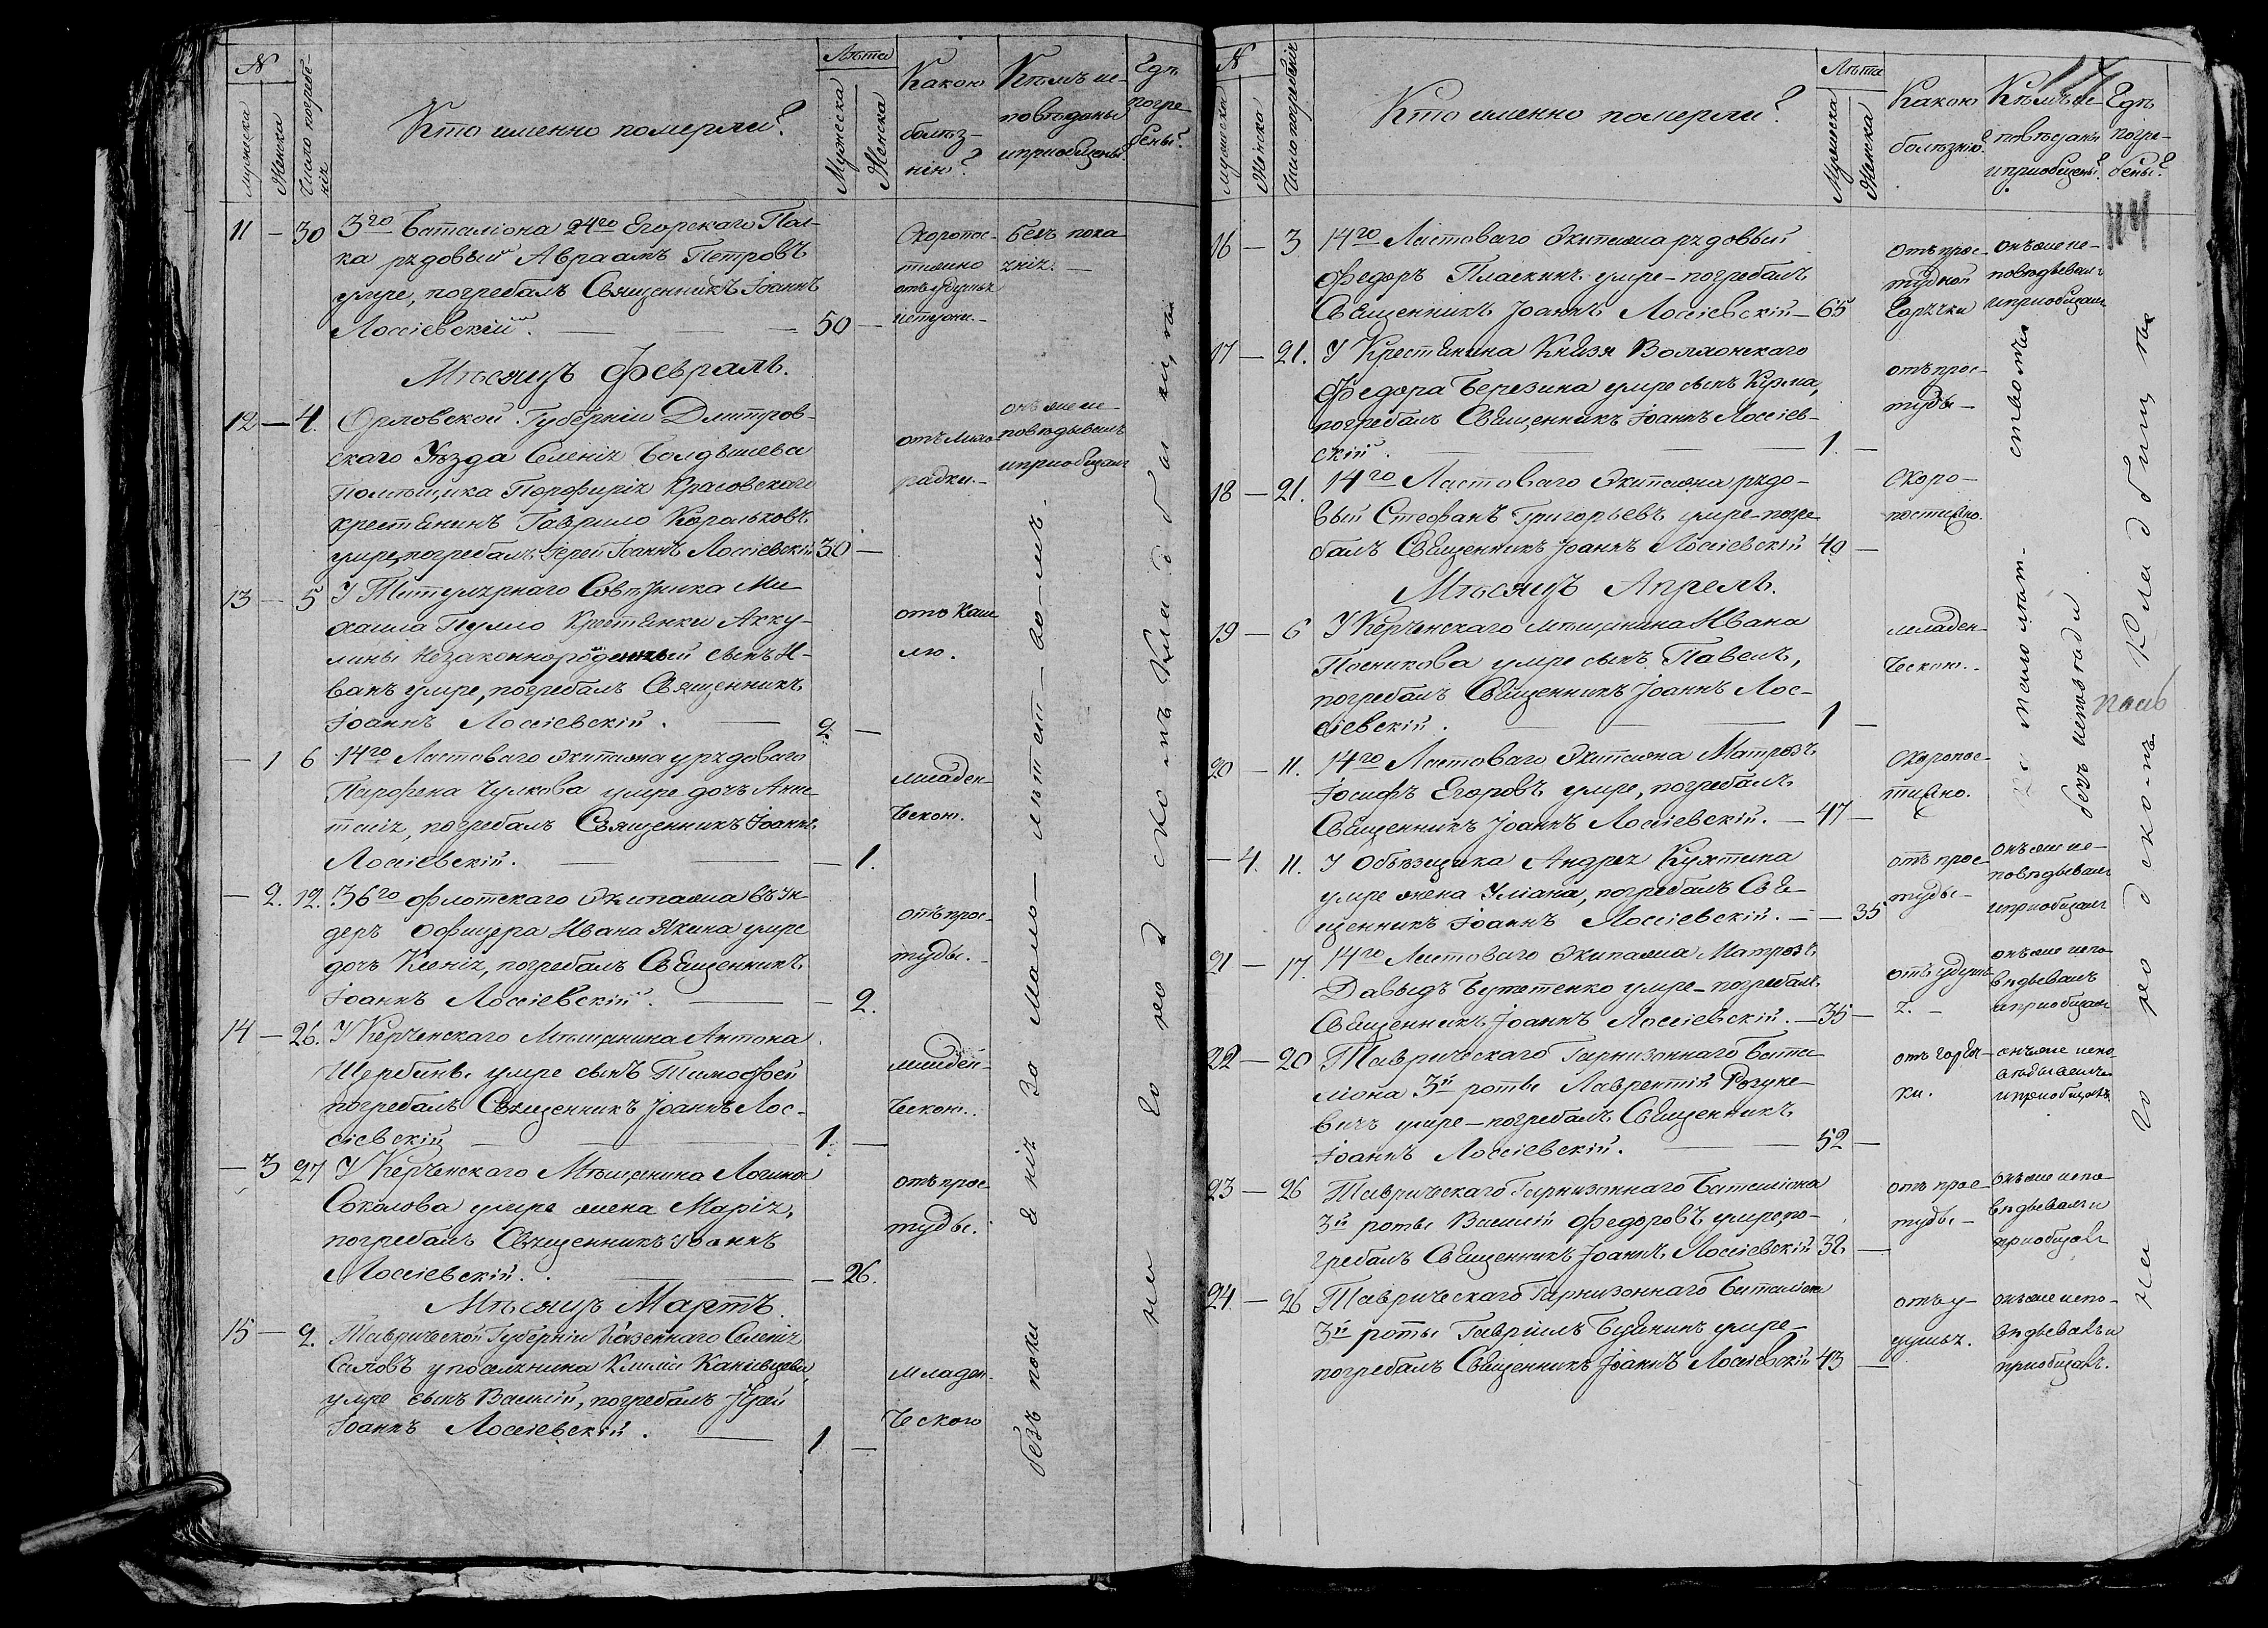 N
мужеска
Женска
Число погребенія
Кто именно померли?
Лѣта
Мужеска
Женска
Какою
болѣз-
нію?
Кѣмъ ис-
повѣданы
и приобщены?
Гдѣ
погре
бены?
11 — 30 3го Баталіона 24го Егорскаго Пол-
ка рядовый Авраамъ Петровъ
умре, погребалъ Священникъ Іоаннъ
Лоссіевскій. — 50 —
Скоропос-
тижно
без пока
янія. —
Мѣсяцъ Февраль.
12 — 4. Орловской Губерніи Дмитров-
скаго Уѣзда Селенія Болдышева
Помѣщика Порфирія Красовскаго
крестьянинъ Гаврило Корольковъ
умре, погребалъ Іерей Іоаннъ Лоссіевскій 30 —
отъ лихо-
радки. —
онъ же ис-
повѣдывалъ
и приобщалъ
13 — 5 У Титулярнаго Совѣтника Ми
хаила Пулло Крестьянки Акку-
лины незаконнорожденный сынъ И-
ванъ умре, погребалъ Священникъ
Іоаннъ Лоссіевскій. — 2. —
отъ каш
лю.
— 1 6 14го Ластоваго Экипажа у рядоваго
Парфена Чулкова умре дочь Анас
тасія, погребалъ Священникъ Іоаннъ
Лоссіевскій. — — 1.
младен-
ческою.
— 2. 12. 36го Флотскаго Экипажа въ ун-
деръ Офицера Ивана Якина умре
дочь Ксенія, погребалъ Священникъ
Іоаннъ Лоссіевскій. — — 2.
отъ прос-
туды. —
14 — 26. У Керченскаго Мѣщанина Антона
Щербины умре сынъ Тимофей
погребалъ Священникъ Іоаннъ Лос-
сіевскій — 1. —
младен-
ческою..
— 3 27 У Керченскаго Мѣщанина Логина
Соколова умре жена Марія,
погребалъ Священникъ Іоаннъ
Лоссіевскій. — — 26.
отъ прос-
туды.
Мѣсяцъ Мартъ.
15 — 2. Таврической Губерніи Казеннаго Селенія
умре сынъ Василій, погребалъ Іерей
Іоаннъ Лоссіевскій. — 1 —
младен-
ческою
на городскомъ кладбищѣ
N
мужеска
Женска
Число погребенія
Кто именно померли?
Лѣта
Мужеска
Женска
Какою
болѣзнію?
Кѣмъ ис-
повѣданы
и приобщены?
Гдѣ
погре-
бены?
16 — 3 14го Ластоваго Экипажа рядовый
Федоръ Пласкинъ умре — погребалъ
Священникъ Іоаннъ Лоссіевскій — 65
отъ прос-
тудной
горячки
онъ же ис-
повѣдывалъ
и приобщалъ
17 — 21. У Крестьянина Князя Волхонскаго
Федора Березина умре сынъ Кузма,
погребалъ Священникъ Іоаннъ Лоссіев-
скій. — 1. —
отъ прос-
туды —
18 — 21. 14го Ластоваго Экипажа рядо-
вый Стефанъ Григорьевъ умре — погре
балъ Священникъ Іоаннъ Лоссіевскій 40 —
Скоро-
постижно.
Мѣсяцъ Апрель.
19 — 6 У Керченскаго мѣщанина Ивана
Посникова умре сынъ Павелъ,
погребалъ Священникъ Іоаннъ Лос-
сіевскій. — 1 —
младен-
ческою..
20 — 11. 14го Ластоваго Экипажа Матрозъ
Іосифъ Егоровъ умре, погребалъ
Священникъ Іоаннъ Лоссіевскій. — 47 —
Скоропос-
тижно.
— 4. 11. У Объѣзщика Андрея Кухтина
умре жена Уліана, погребалъ Свя-
щенникъ Іоаннъ Лоссіевскій. — — 35
отъ прос-
туды —
онъ же ис-
повѣдывалъ
и приобщалъ
21 — 17. 14го Ластоваго Экипажа Матрозъ
Давыдъ умре — погребалъ
Священникъ Іоаннъ Лоссіевскій. — 35 —
отъ удушь
я. —
онъ же испо-
вѣдывалъ
и приобщалъ
22 — 20 Таврическаго Гарнизоннаго Бата
ліона 3й роты Лаврентій
вичъ умре — погребалъ Священникъ
Іоаннъ Лоссіевскій. — 52 —
отъ горяч-
ки.
онъ же испо-
вѣдывалъ
и приобщалъ
23 — 26 Таврическаго Гарнизоннаго Баталіона
3й роты Василій Федоровъ умре, по-
гребалъ Священникъ Іоаннъ Лоссіевскій 32 —
отъ прос-
туды —
онъ же испо-
вѣдывалъ и
приобщалъ
24 — 26 Таврическаго Гарнизоннаго Баталіона
3й роты Гавріилъ умре —
погребалъ Священникъ Іоаннъ Лоссіевскій 43 —
отъ у-
душья.
онъ же испо-
вѣдывалъ и
приобщалъ.
безъ исповѣди
на городскомъ кладбищѣ